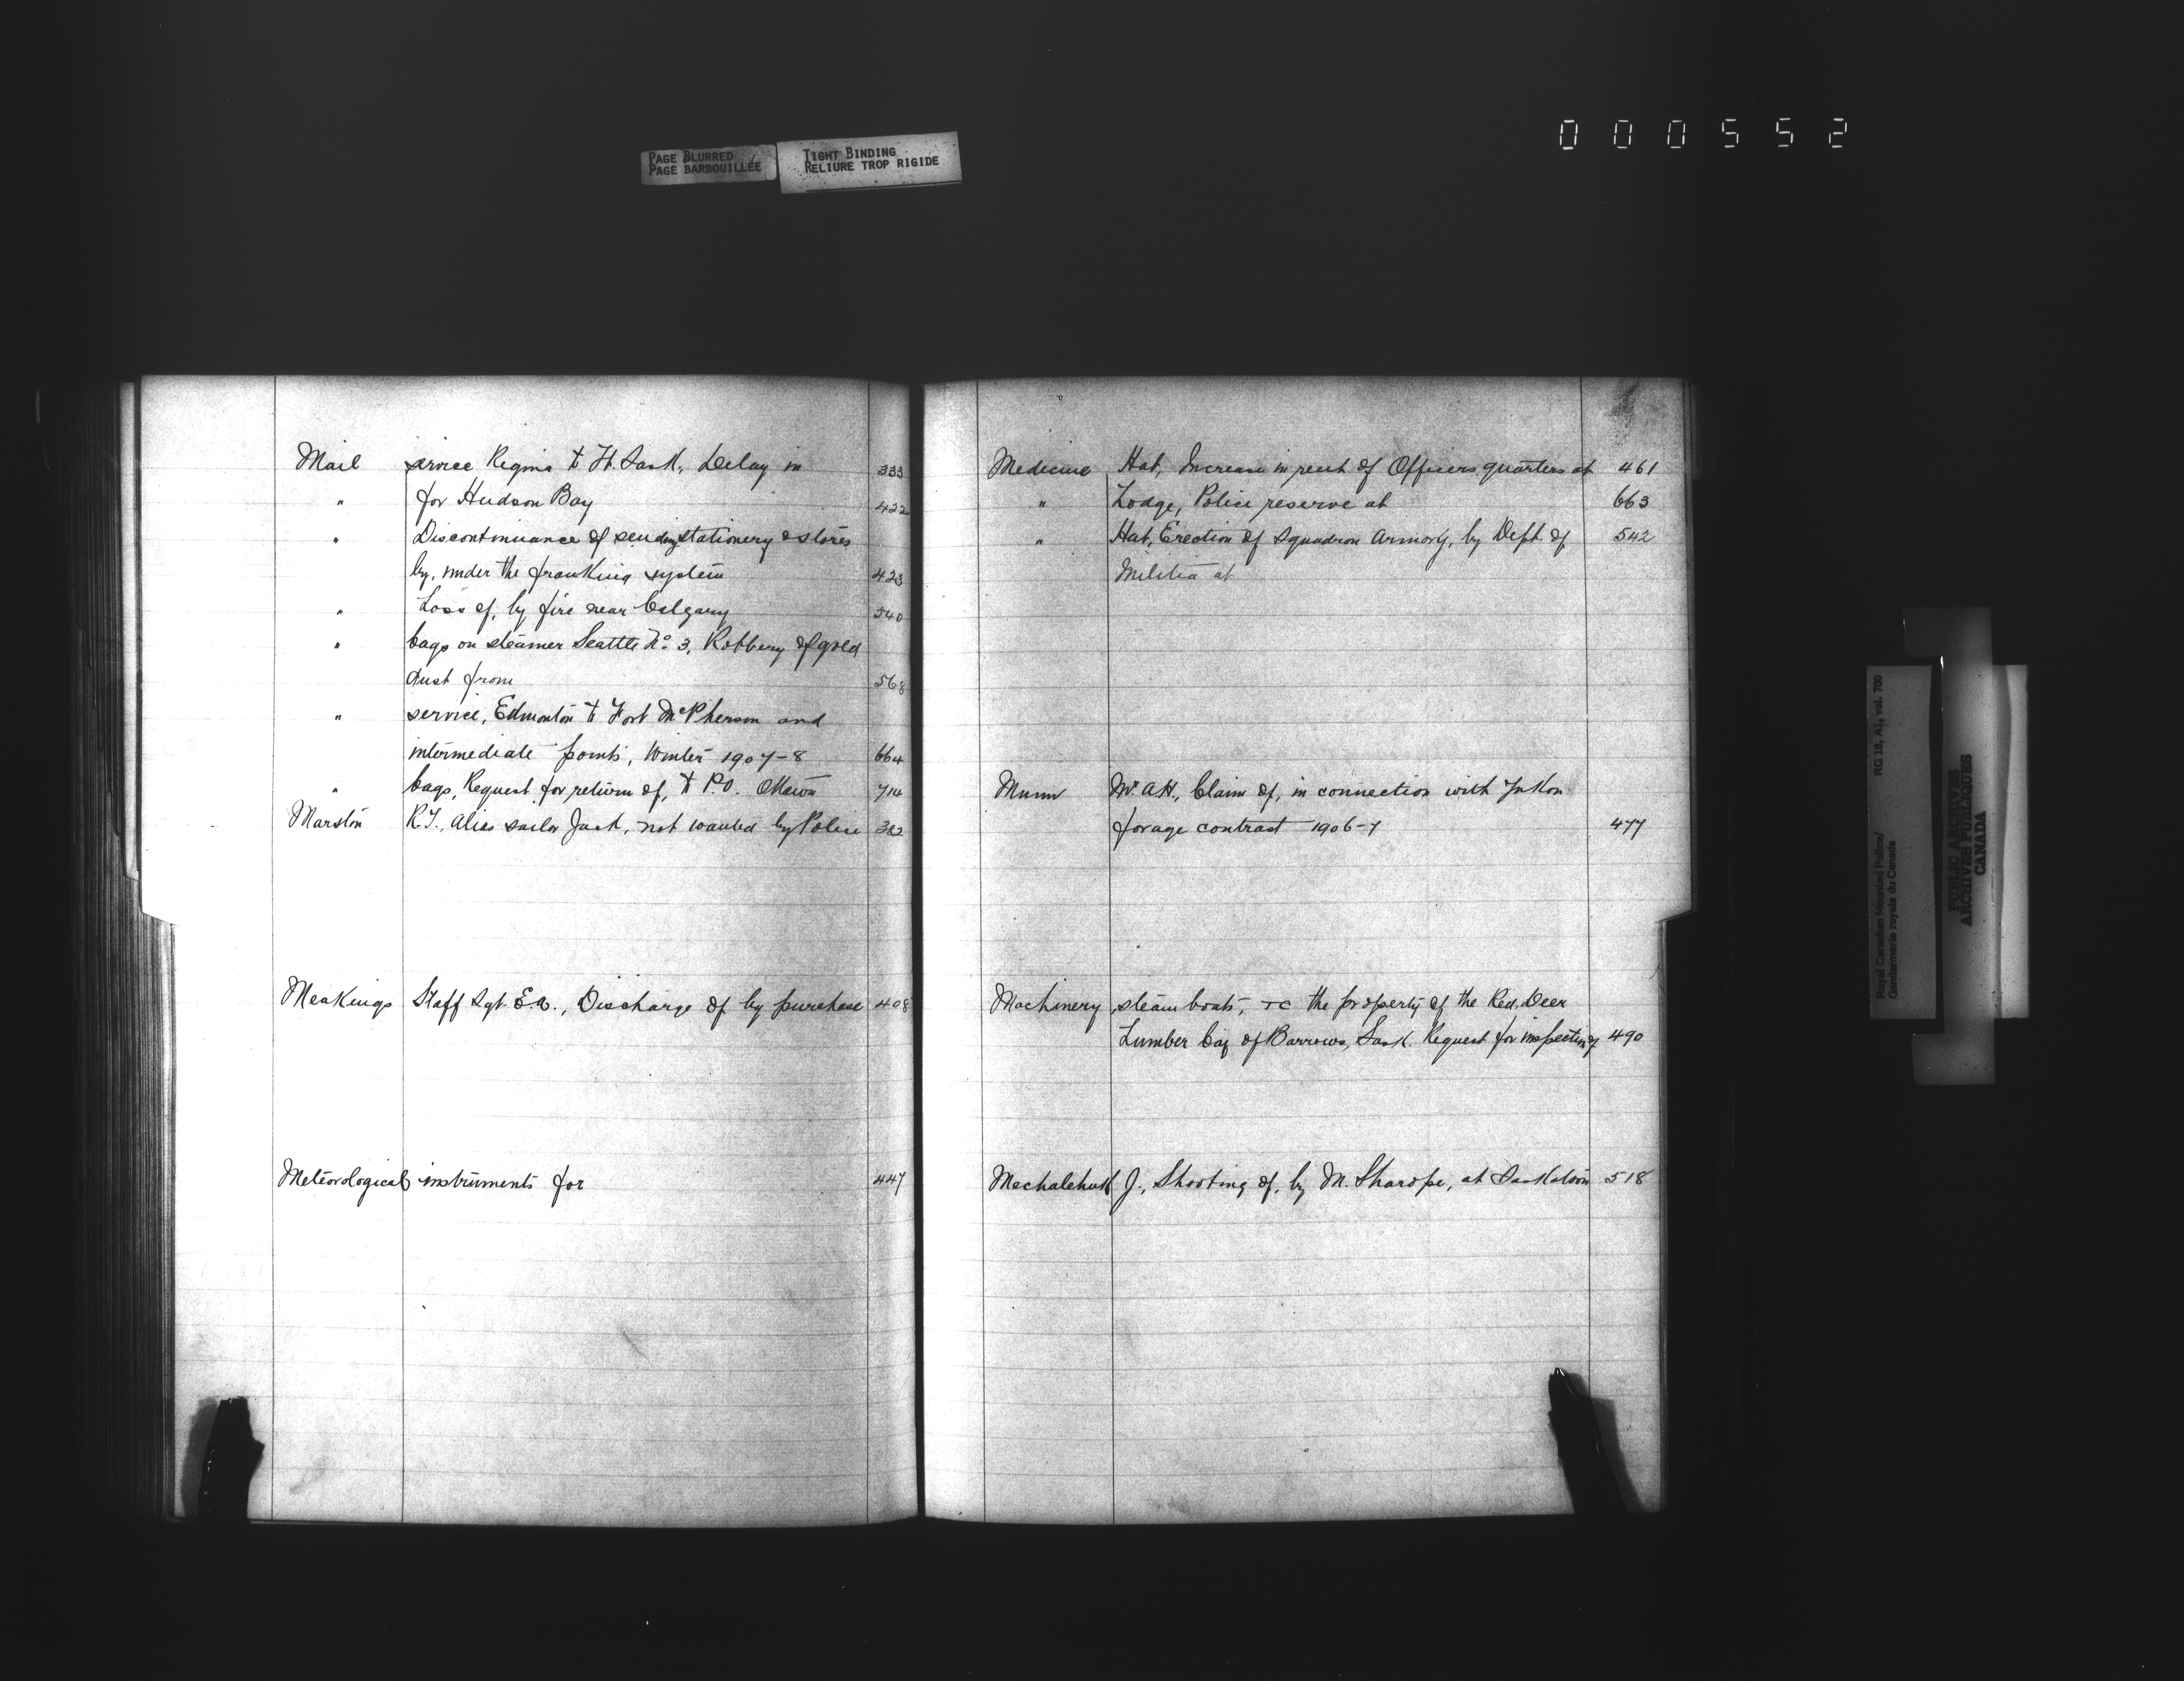 000552
PAGE BLURRED
PAGE BARBOUILLÉE
TIGHT BINDING
RELIURE TROP RIGIDE
Mail service Regina to Ft. Sask, Delay in 333
" for Hudson Bay 422
" Discontinuance of sending stationery & stores
by, under the franking system 423
" Loss of, by fire near Calgary 540
" bags on steamer Seattle No. 3, Robbery of gold
dust from 568
" service, Edmonton to Fort McPherson and
intermediate points, Winter 1907-8 664
" bags, Request for return of, to P.O. Ottawa 714
Marston R.T., alias sailor Jack, not wanted by Police 382
Meakings Staff Sgt. E.A., Discharge of by purchase 408
Meteorological instruments for 447
Medicine Hat, Increase in rent of Officers quarters at 461
" Lodge, Police reserve at 663
" Hat, Erection of Squadron Armory, by Dept. of 542
Militia at
Munn Mr. A.H., Claim of, in connection with Yukon
forage contract 1906-7 477
Machinery, steam boats, &c the property of the Red Deer
Lumber Coy of Barrows, Sask. Request for inspection of 490
Mechalchuk J., Shooting of, by M. Sharope, at Saskatoon 518
Royal Canadian Mounted Police/
Gendarmerie royale du Canada
RG 18, A1, vol. 700
PUBLIC ARCHIVES
ARCHIVES PUBLIQUES
CANADA